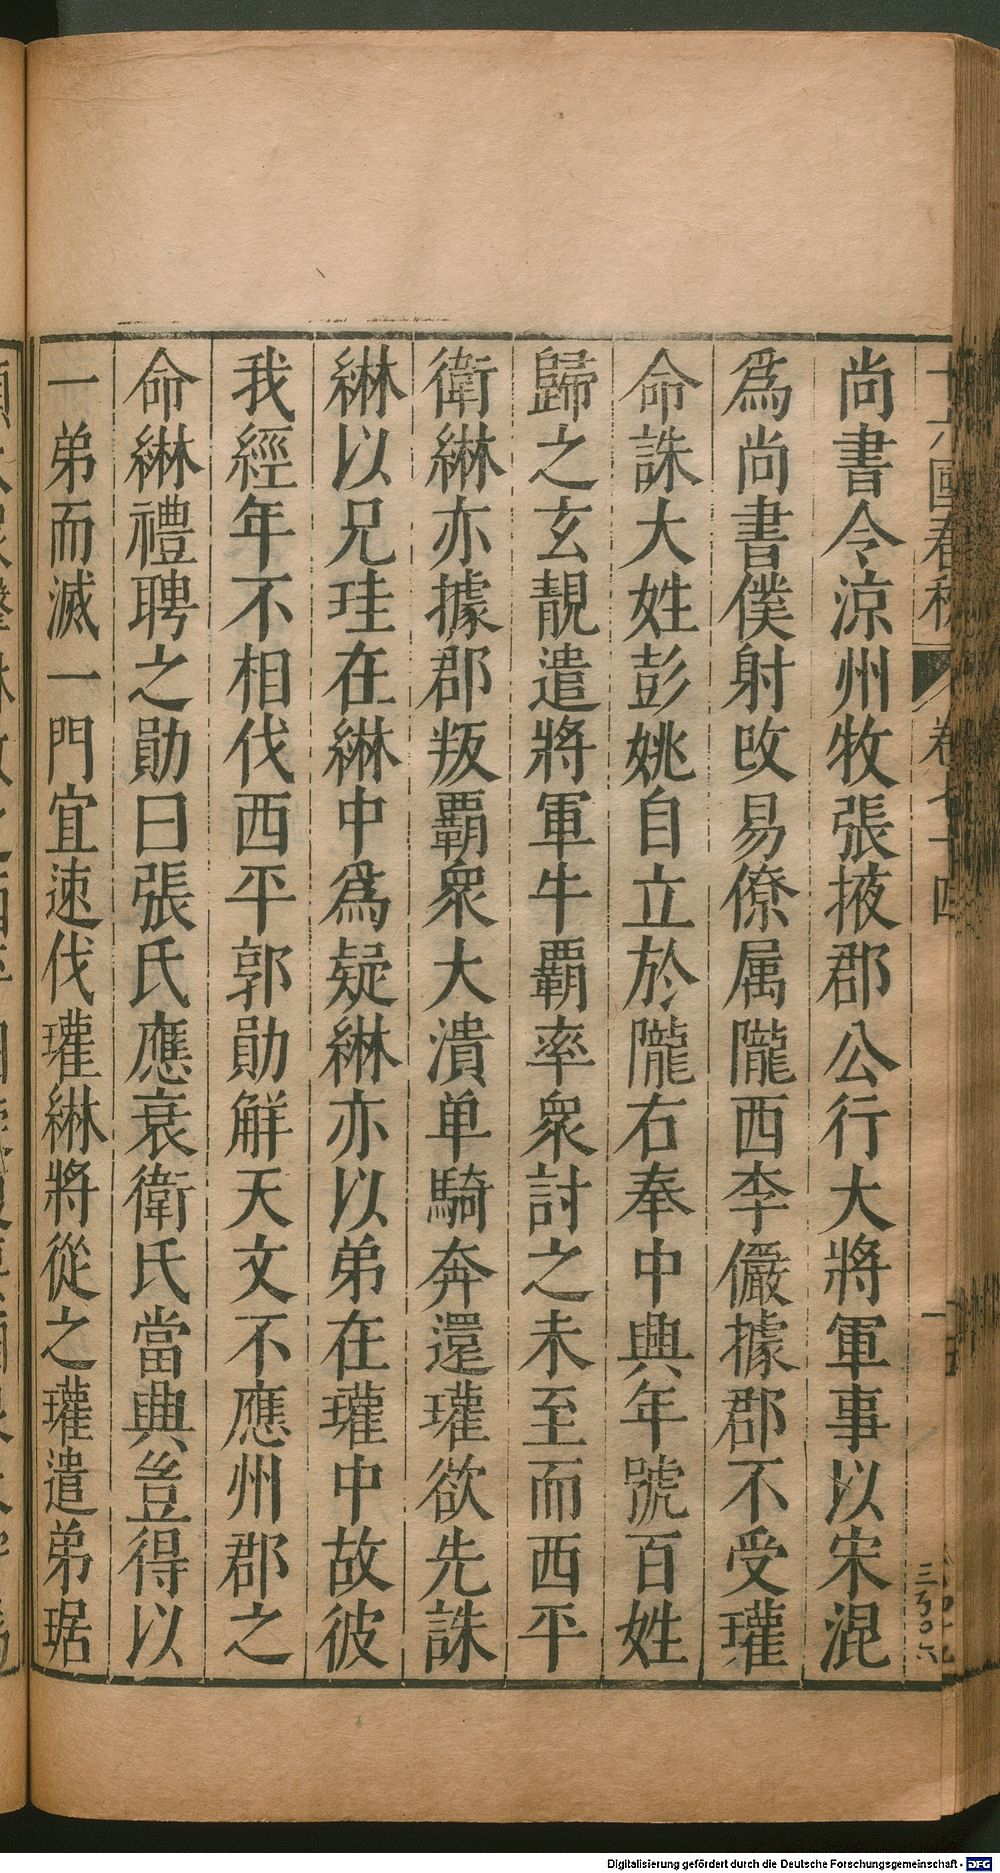 十六國春秋 卷七十四
尚書令涼州牧張掖郡公行大將軍事以宋混
爲尚書僕射改易僚属隴西李儼據郡不受瓘
命誅大姓彭姚自立於隴右奉中興年號百姓
歸之玄靚遣將軍牛覇率衆討之未至而西平
衛綝亦據郡叛覇衆大潰单騎奔還瓘欲先誅
綝以兄珪在綝中爲疑綝亦以弟在瓘中故彼
我經年不相伐西平郭勛觧天文不應州郡之
命綝禮聘之勛曰張氏應衰衛氏當興豈得以
一弟而滅一門宜速伐瓘綝將從之瓘遣弟琚
Digitalisierung gefördert durch die Deutsche Forschungsgemeinschaft - DFG